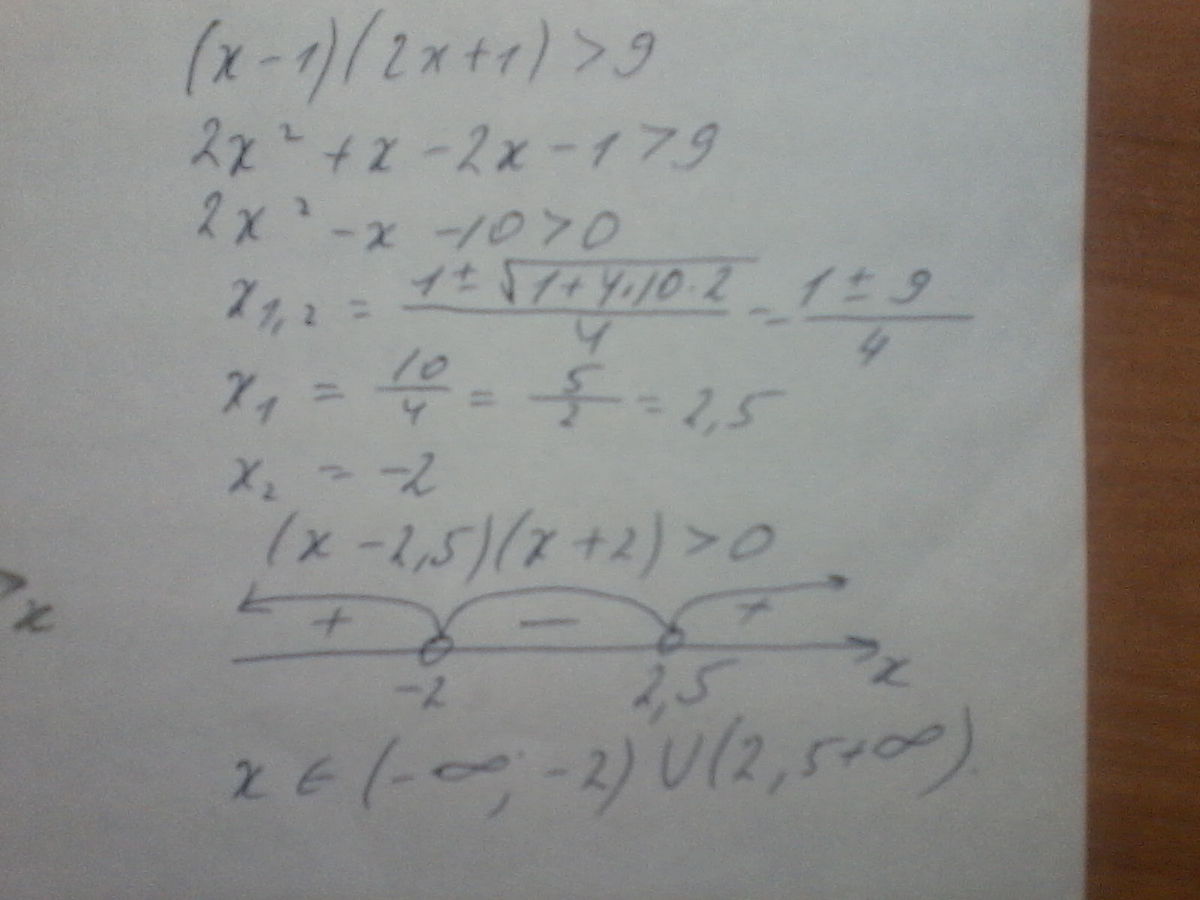 (x-1)(2x+1)>9
2x² +x -2x -1>9
2x² -x -10>0
x₁,₂ = (1±√(1+4·10·2))/4 = (1±9)/4
x₁ = 10/4 = 5/2 = 2,5
x₂ = -2
(x -2,5)(x+2)>0
+ — +
x
-2 2,5 x
x ∈ (-∞; -2) ∪ (2,5+∞)